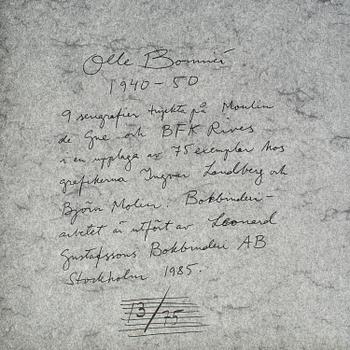 Olle Bonniér
1940-50
9 serigrafier tryckta på Moulin
de Gue och BFK Rives
i en upplaga av 75 exemplar hos
grafikerna Ingvar Landberg och
Björn Molin. Bokbinderi-
arbetet är utfört av Leonard
Gustafssons Bokbinderi AB
Stockholm 1985.
13/75